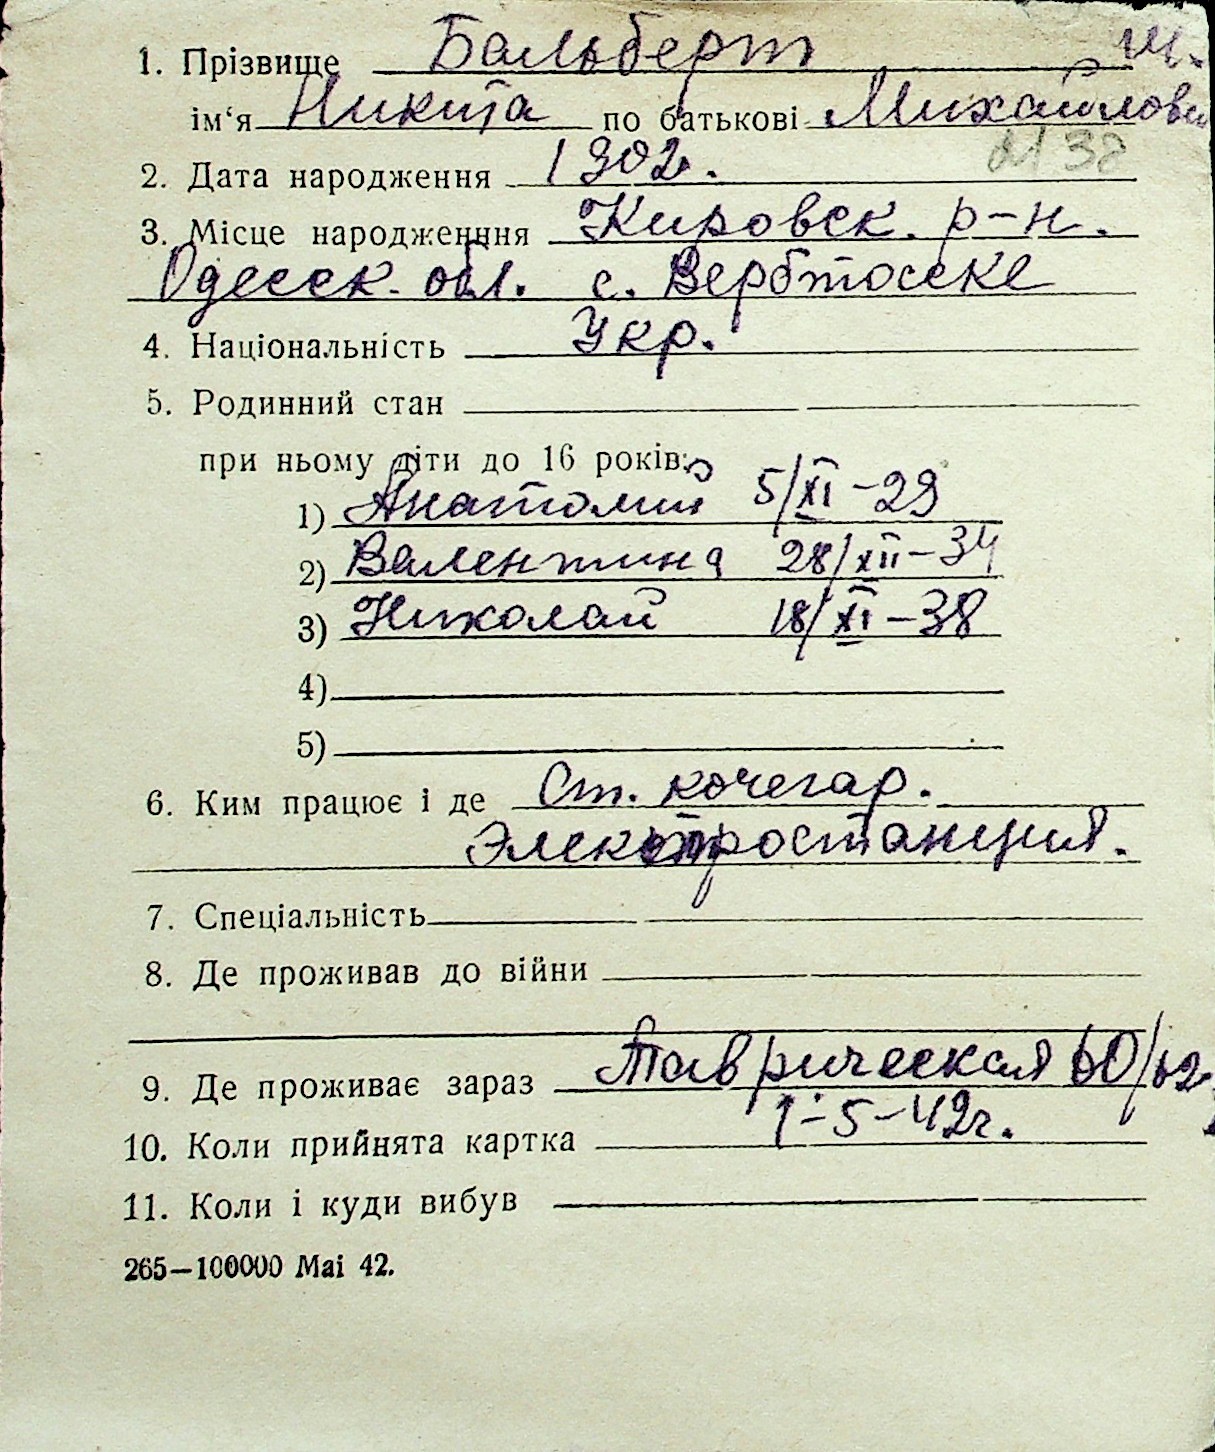 1. Прізвище Бальберт Ш.
ім‘я Никита по батькові Михайлович
2138
2. Дата народження 1902.
3. Місце народженння Кировск. р-н.
Одесск. обл. с.
4. Національність Укр.
5. Родинний стан
при ньому діти до 16 років:
1) Анатолий 5/XI-29
2) Валентина 28/XII-34
3) Николай 18/XI-38
4)
5)
6. Ким працює і де Ст. кочегар.
Электростанция.
7. Спеціальність
8. Де проживав до війни
9. Де проживає зараз Таврическая 60/62
10. Коли прийнята картка 1-5-42г.
11. Коли і куди вибув
265—100000 Mai 42.